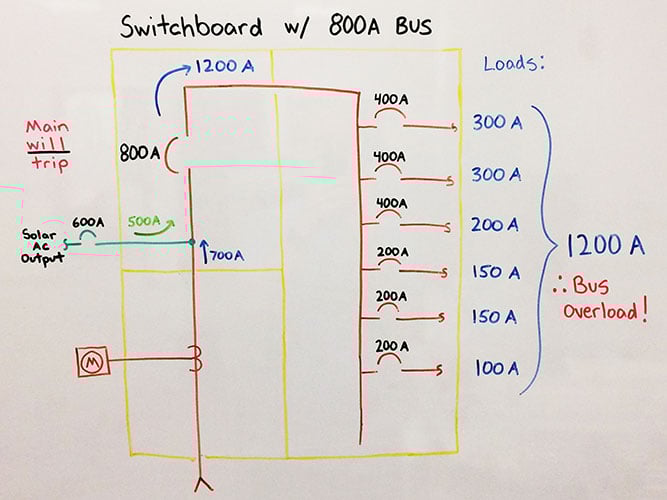 Switchboard w/ 800A Bus
1200 A
Loads:
Main
will
trip
800A
400A
300 A
400A
300 A
400A
200 A
200A
150 A
200A
150 A
200 A
100 A
1200 A
∴ Bus
Overload!
600A
500A
Solar
AC
Output
700A
M